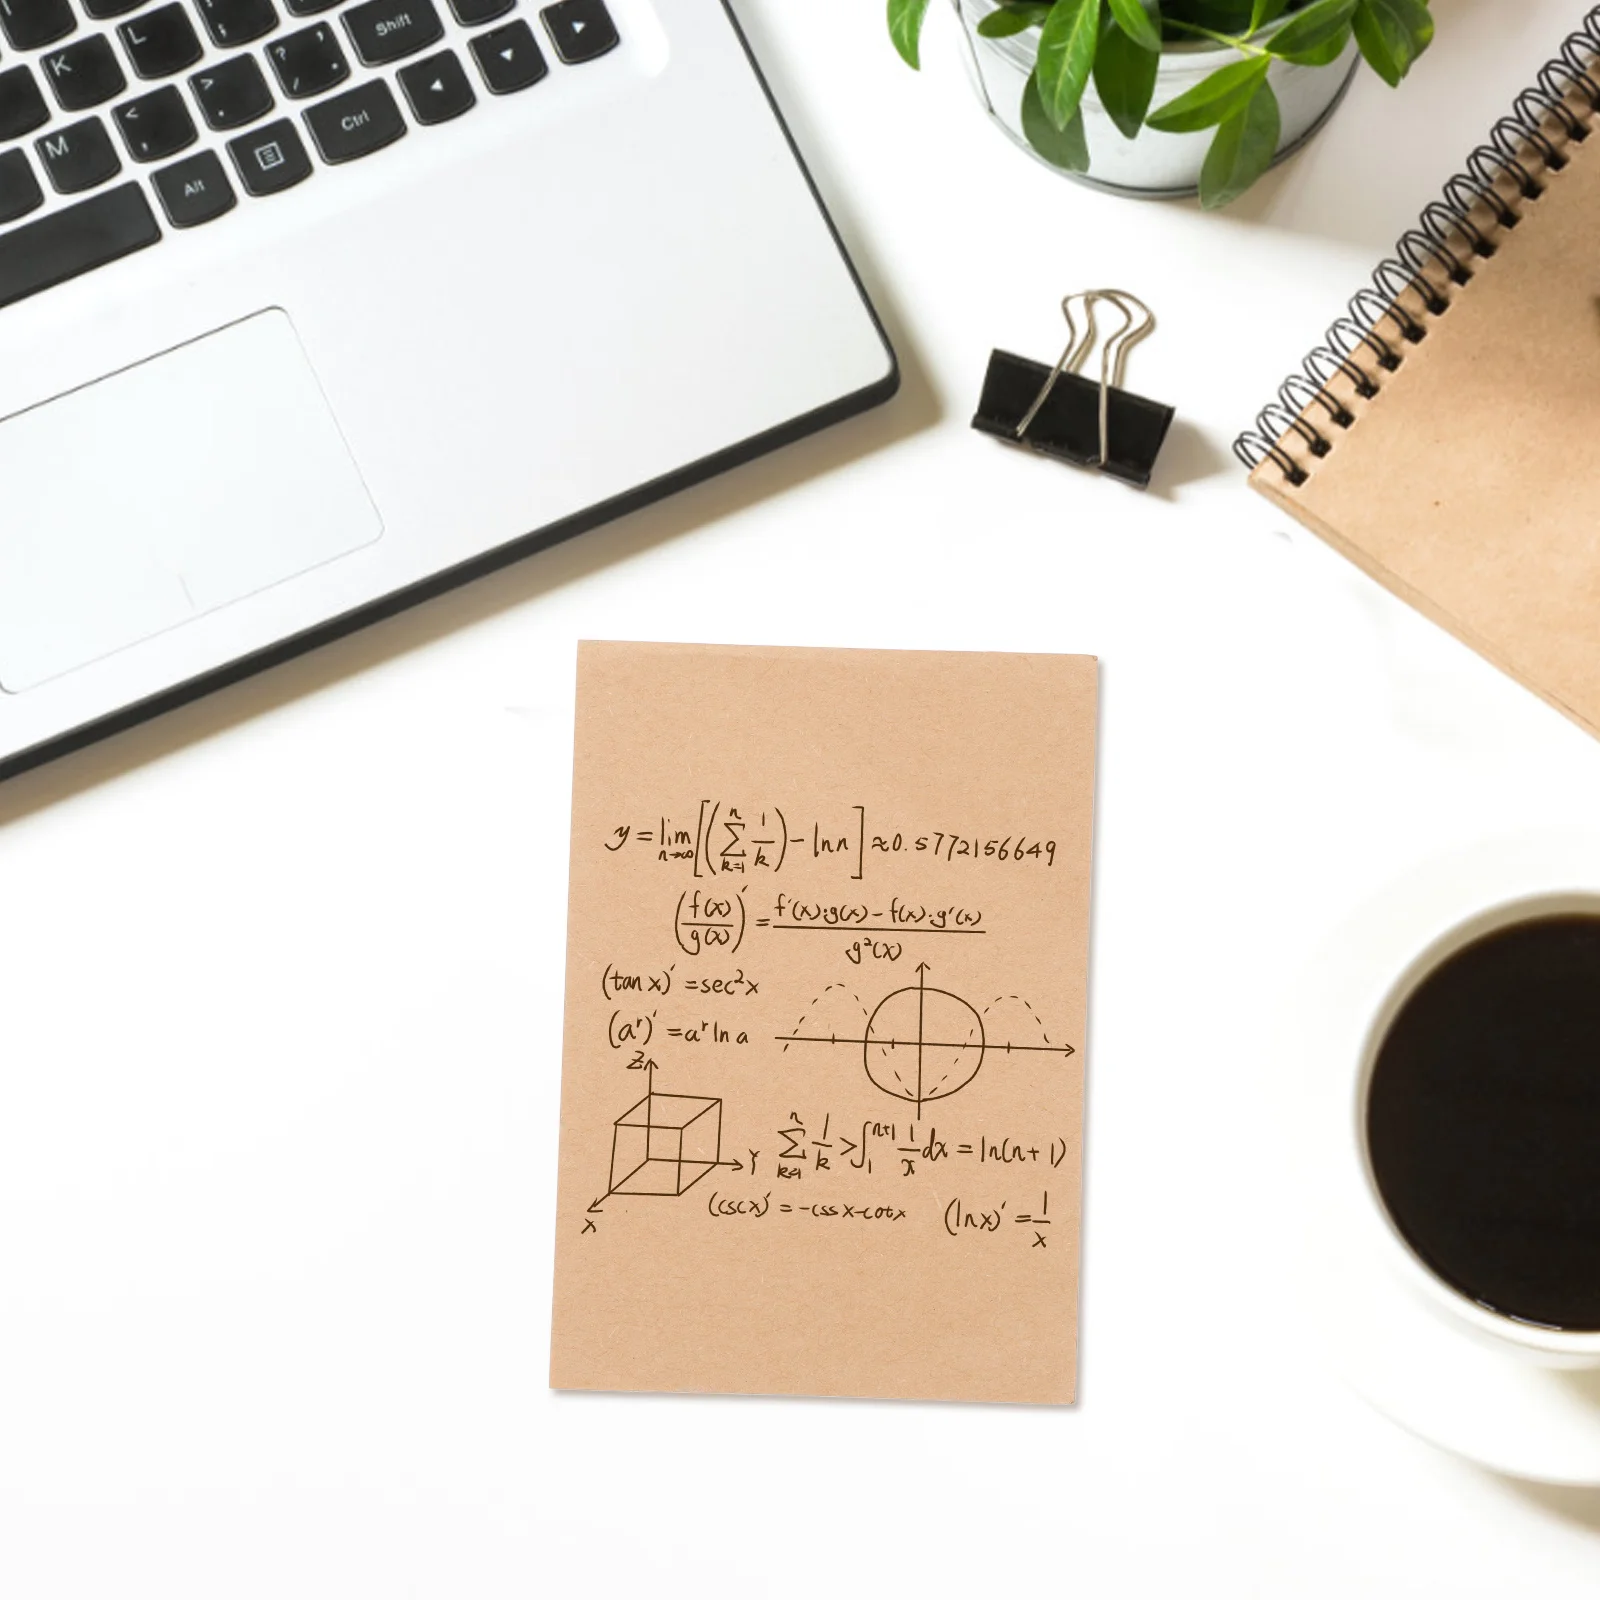 K L : ; ? ' / . Shift
M < , > . Ctrl
Alt
y = lim n→∞ [(∑ n k=1 1/k) − ln n] ≈ 0.5772156649
(f(x)/g(x))′ = f′(x)·g(x) − f(x)·g′(x) / g²(x)
(tan x)′ = sec²x
(aʳ)′ = aʳ ln a
Z
Y
X
∑ n k=1 1/k > ∫₁ⁿ⁺¹ 1/x dx = ln(n+1)
(csc x)′ = -css x-cot x
(ln x)′ = 1/x